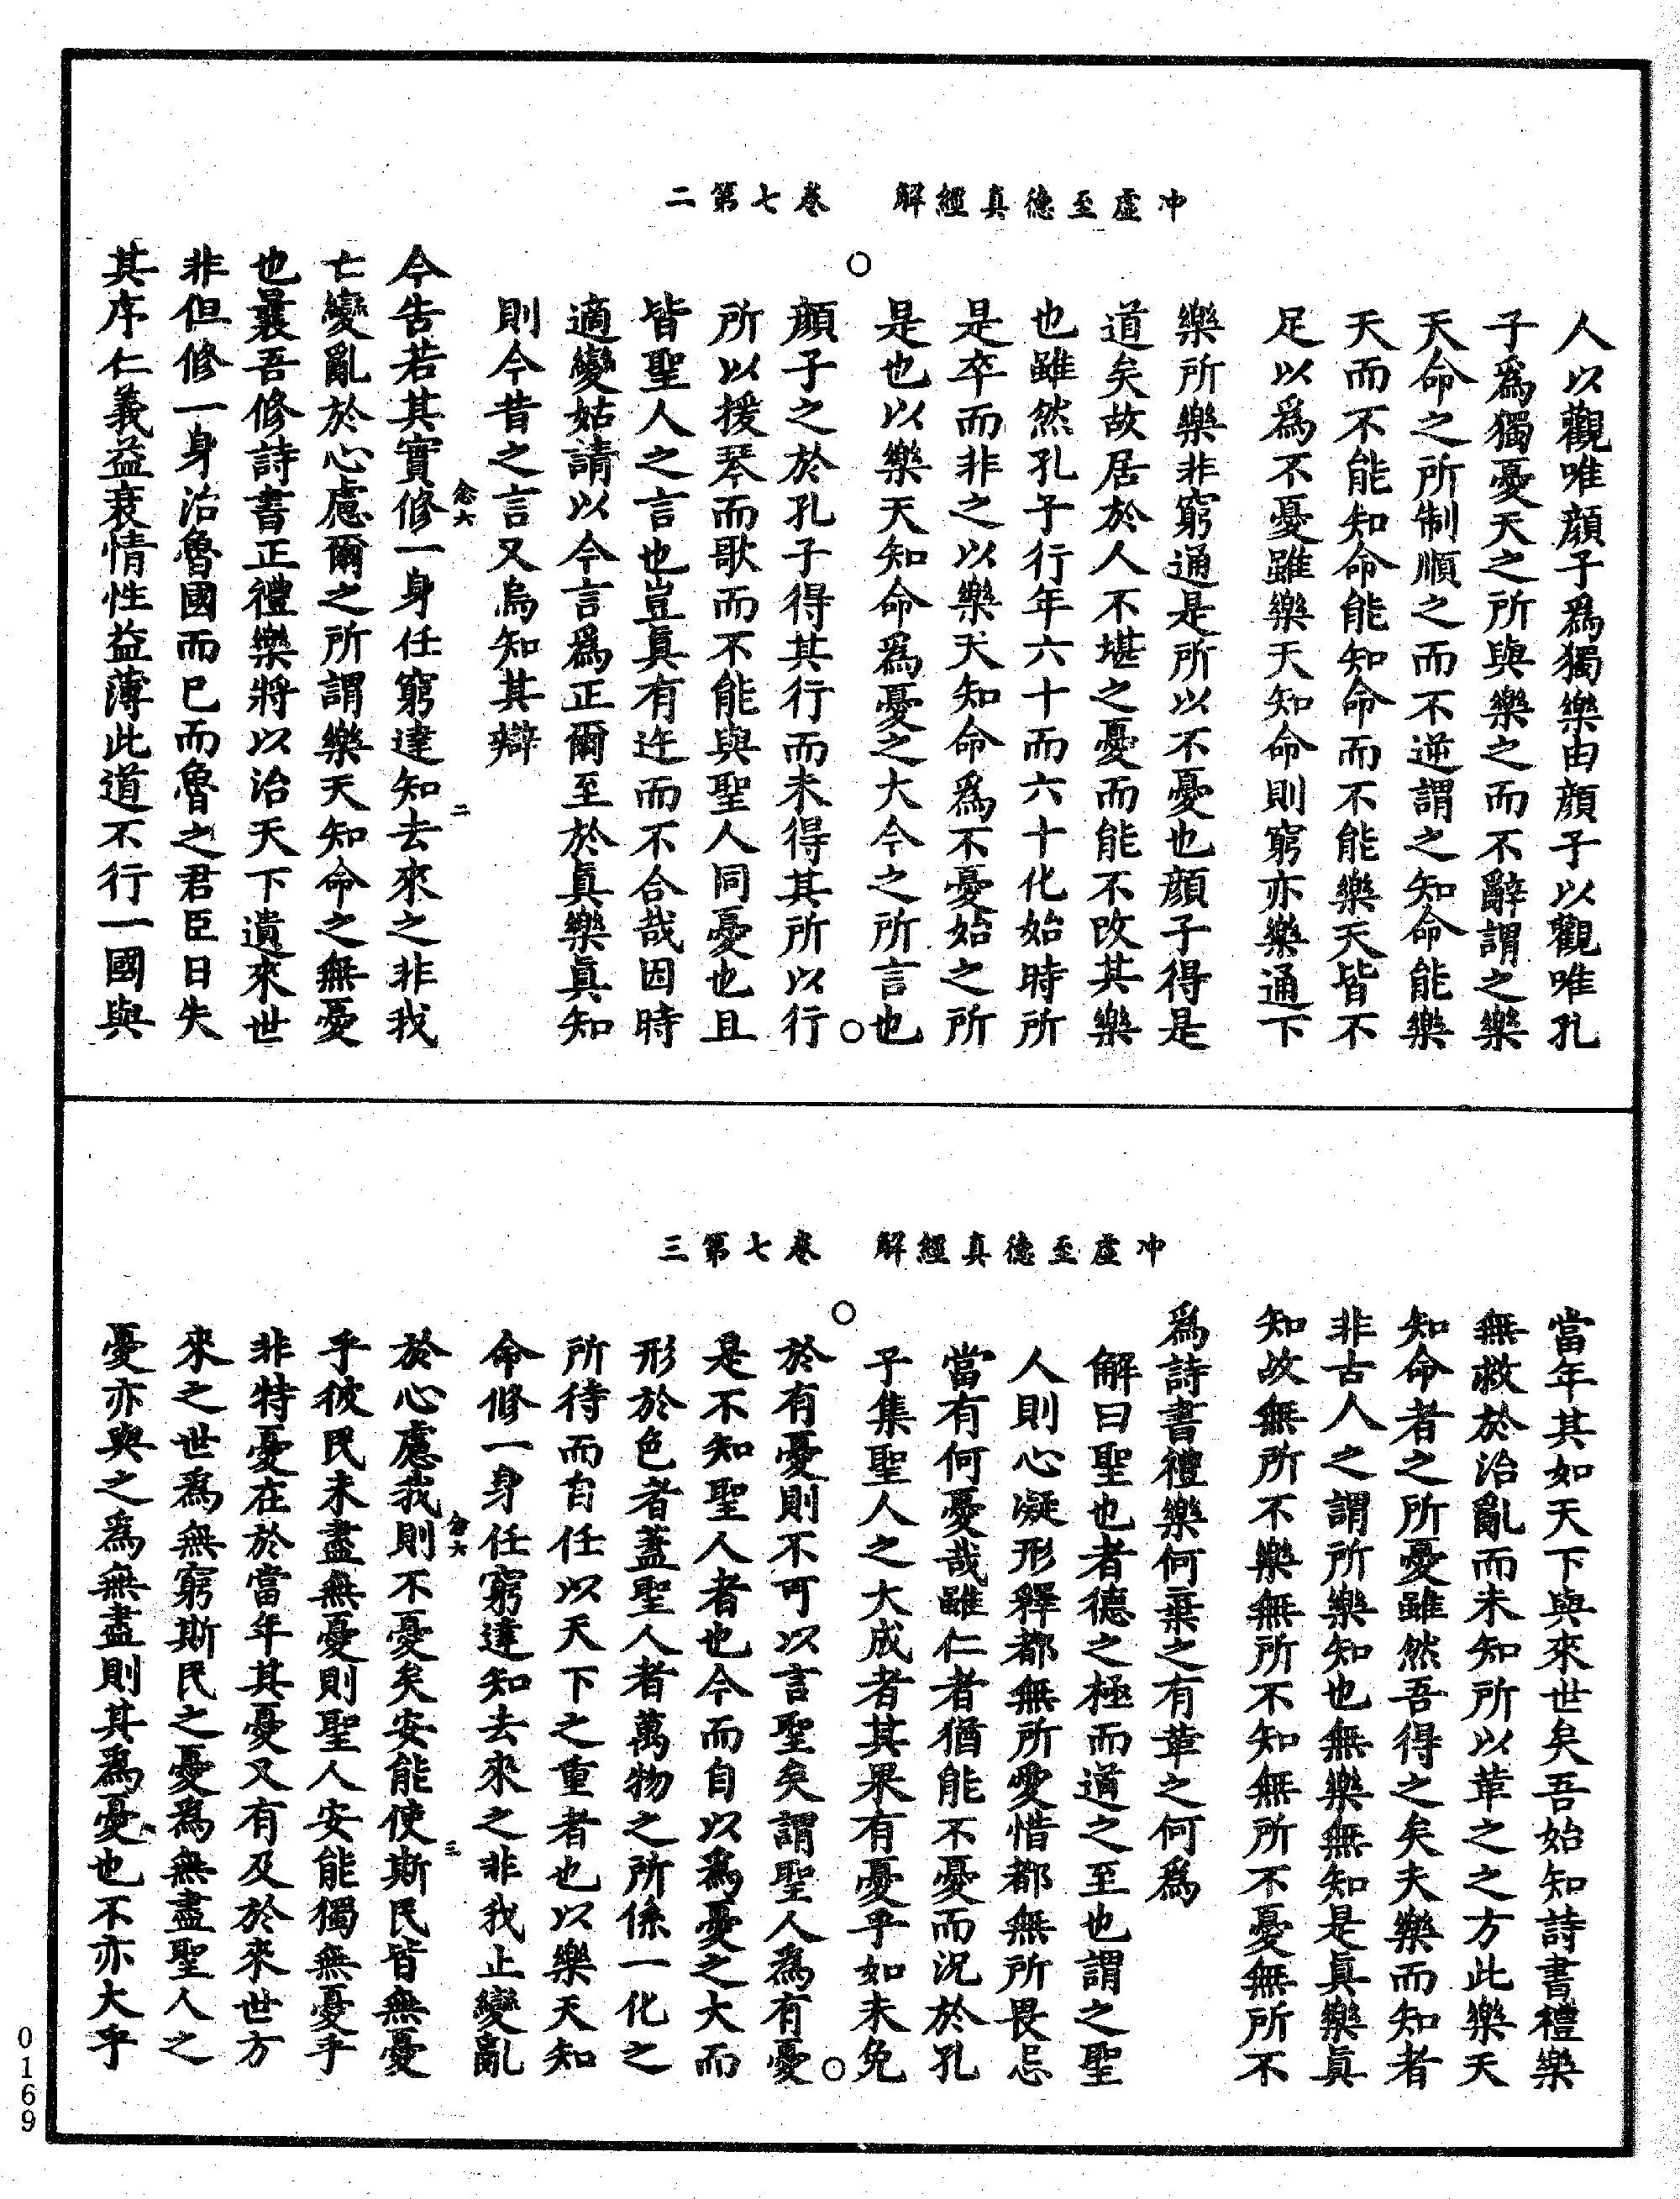 冲虛至德真經解　卷七第二
人以觀唯顔子爲獨樂由顔子以觀唯孔
子爲獨憂天之所與樂之而不辭謂之樂
天命之所制順之而不逆謂之知命能樂
天而不能知命能知命而不能樂天皆不
足以爲不憂雖樂天知命則窮亦樂通下
樂所樂非窮通是所以不憂也顔子得是
道矣故居於人不堪之憂而能不改其樂
也雖然孔子行年六十而六十化始時所
是卒而非之以樂天知命爲不憂始之所
是也以樂天知命爲憂之大今之所言也
顔子之於孔子得其行而未得其所以行
所以援琴而歌而不能與聖人同憂也且
皆聖人之言也豈眞有迕而不合哉因時
適變姑請以今言爲正爾至於眞樂眞知
則今昔之言又烏知其辯
今告若其實修一身任窮達知去來之非我
亡變亂於心慮爾之所謂樂天知命之無憂
也曩吾修詩書正禮樂將以治天下遺來世
非但修一身治魯國而已而魯之君臣日失
其序仁義益衰情性益薄此道不行一國與
念六
二
冲虛至德真經解　卷七第三
當年其如天下與來世矣吾始知詩書禮樂
無救於治亂而未知所以革之之方此樂天
知命者之所憂雖然吾得之矣夫樂而知者
非古人之謂所樂知也無樂無知是眞樂眞
知故無所不樂無所不知無所不憂無所不
爲詩書禮樂何棄之有革之何爲
解曰聖也者德之極而道之至也謂之聖
人則心凝形釋都無所愛惜都無所畏忌
當有何憂哉雖仁者猶能不憂而況於孔
子集聖人之大成者其果有憂乎如未免
於有憂則不可以言聖矣謂聖人爲有憂
是不知聖人者也今而自以爲憂之大而
形於色者蓋聖人者萬物之所係一化之
所待而自任以天下之重者也以樂天知
命修一身任窮達知去來之非我止變亂
於心慮我則不憂矣安能使斯民皆無憂
乎彼民未盡無憂則聖人安能獨無憂乎
非特憂在於當年其憂又有及於來世方
來之世爲無窮斯民之憂爲無盡聖人之
憂亦與之爲無盡則其爲憂也不亦大乎
念六
三
0169